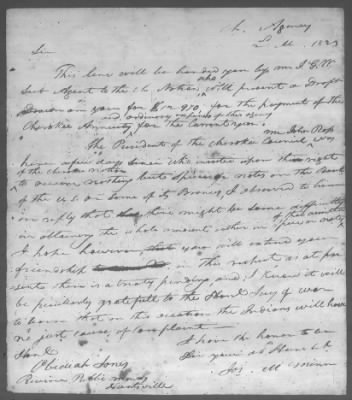 Ch. Agency
1823
Sir
This line will be handed you by mr J G W
Sub Agent to the Ch. Nation, who will present a Draft
Drawn on you for $ 970, for the payment of the
and ordinary expenses of this agency
Cherokee Annuity, for the Current year.
The President of the Cherokee Council mr John Ross was
here a few days since who insisted upon the right
of the Cherokee Nation
to receive nothing but specie or notes on the Bank
of the U. S. or some of its Branches, I observed to him
in reply that there might be some difficulty
in obtaining the whole amount either in specie or notes of this
I hope however that you will extend your
friendship in this respect as at pre
sent there is a treaty pending and I know it will
be peculiarly gratefull to the Honl. Secy of war
to learn that on this occasion the Indians will have
no just cause of complaint
I have the honor to be
Sir your Ob Humb St
Jos. McMinn
Obediah Jones
Receiver Public monies
Huntsville